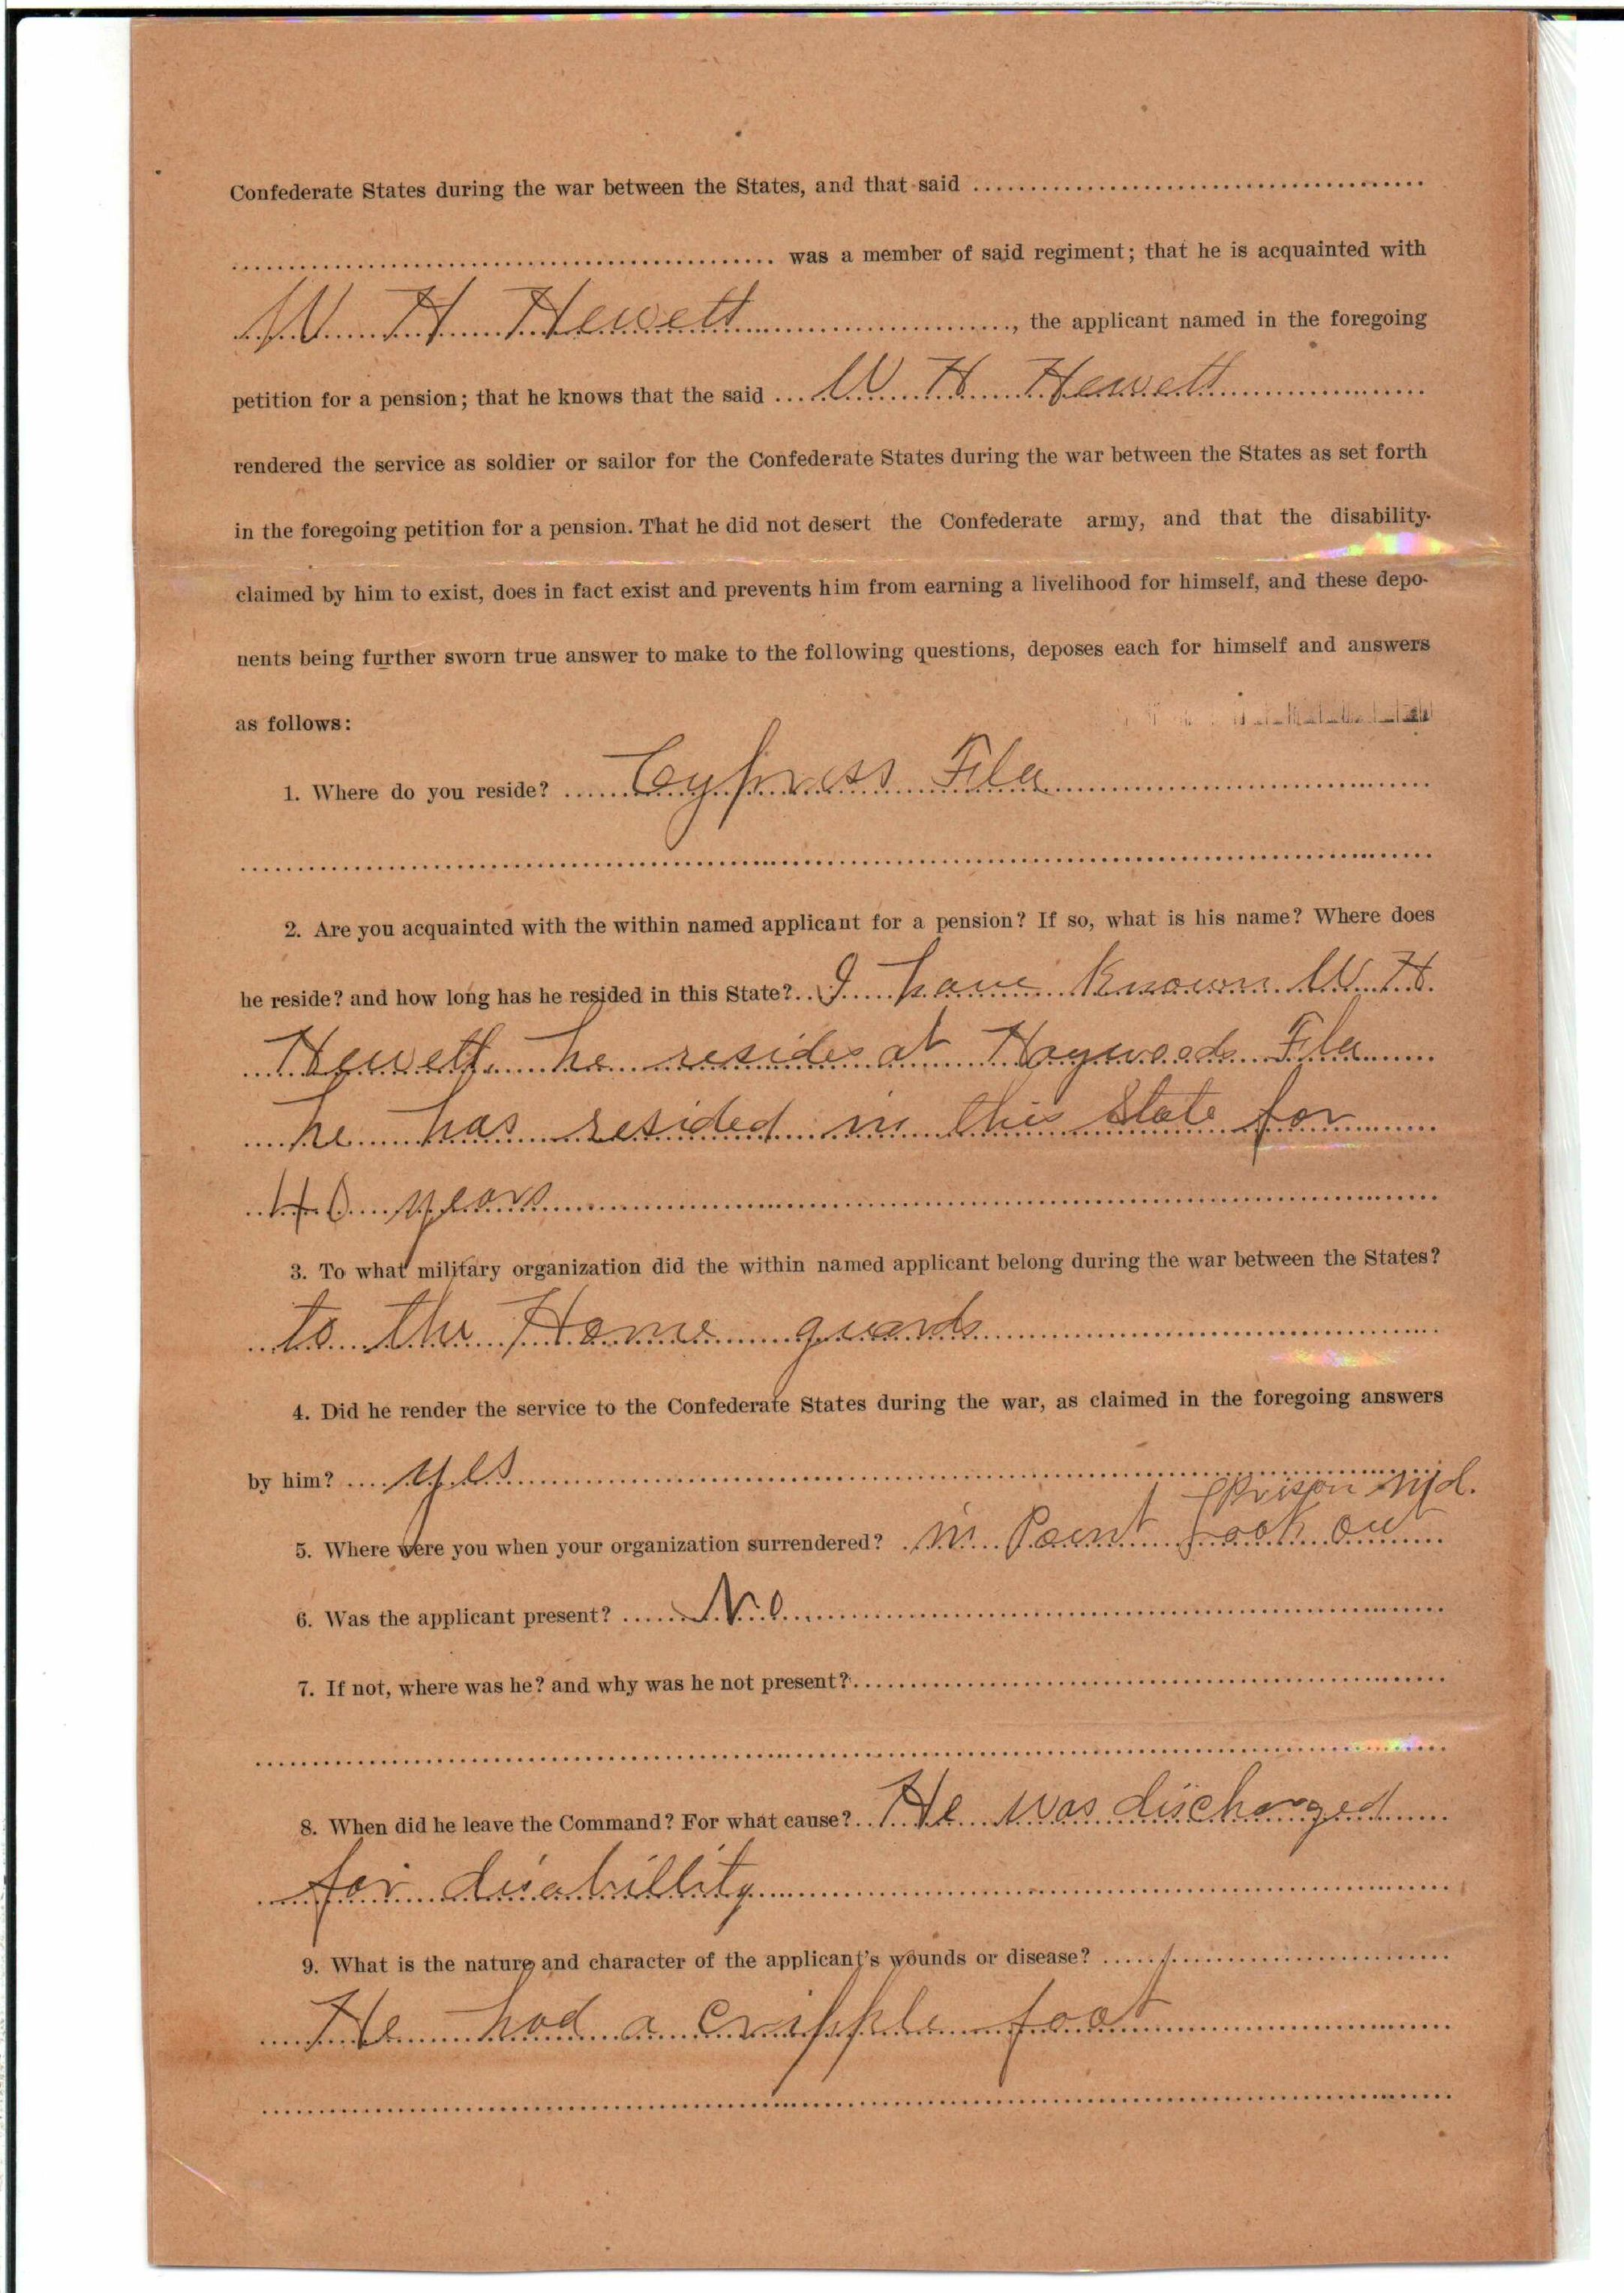 Confederate States during the war between the States, and that said
was a member of said regiment; that he is acquainted with
W. H. Hewett, the applicant named in the foregoing
petition for a pension; that he knows that the said W H Hewett
rendered the service as soldier or sailor for the Confederate States during the war between the States as set forth
in the foregoing petition for a pension. That he did not desert the Confederate army, and that the disability
claimed by him to exist, does in fact exist and prevents him from earning a livelihood for himself, and these depo-
nents being further sworn true answer to make to the following questions, deposes each for himself and answers
as follows:
1. Where do you reside? Cypress Fla
2. Are you acquainted with the within named applicant for a pension? If so, what is his name? Where does
he reside? and how long has he resided in this State? I have Known W. H.
Hewett. he resides at Haywood Fla
he has resided in this State for
40 years
3. To what military organization did the within named applicant belong during the war between the States?
to the Home guards
4. Did he render the service to the Confederate States during the war, as claimed in the foregoing answers
by him? yes
Prison Md.
5. Where were you when your organization surrendered? in Point Look out
6. Was the applicant present? No
7. If not, where was he? and why was he not present?
8. When did he leave the Command? For what cause? He was discharged
for disabillity
9. What is the nature and character of the applicant's wounds or disease?
He had a cripple foot